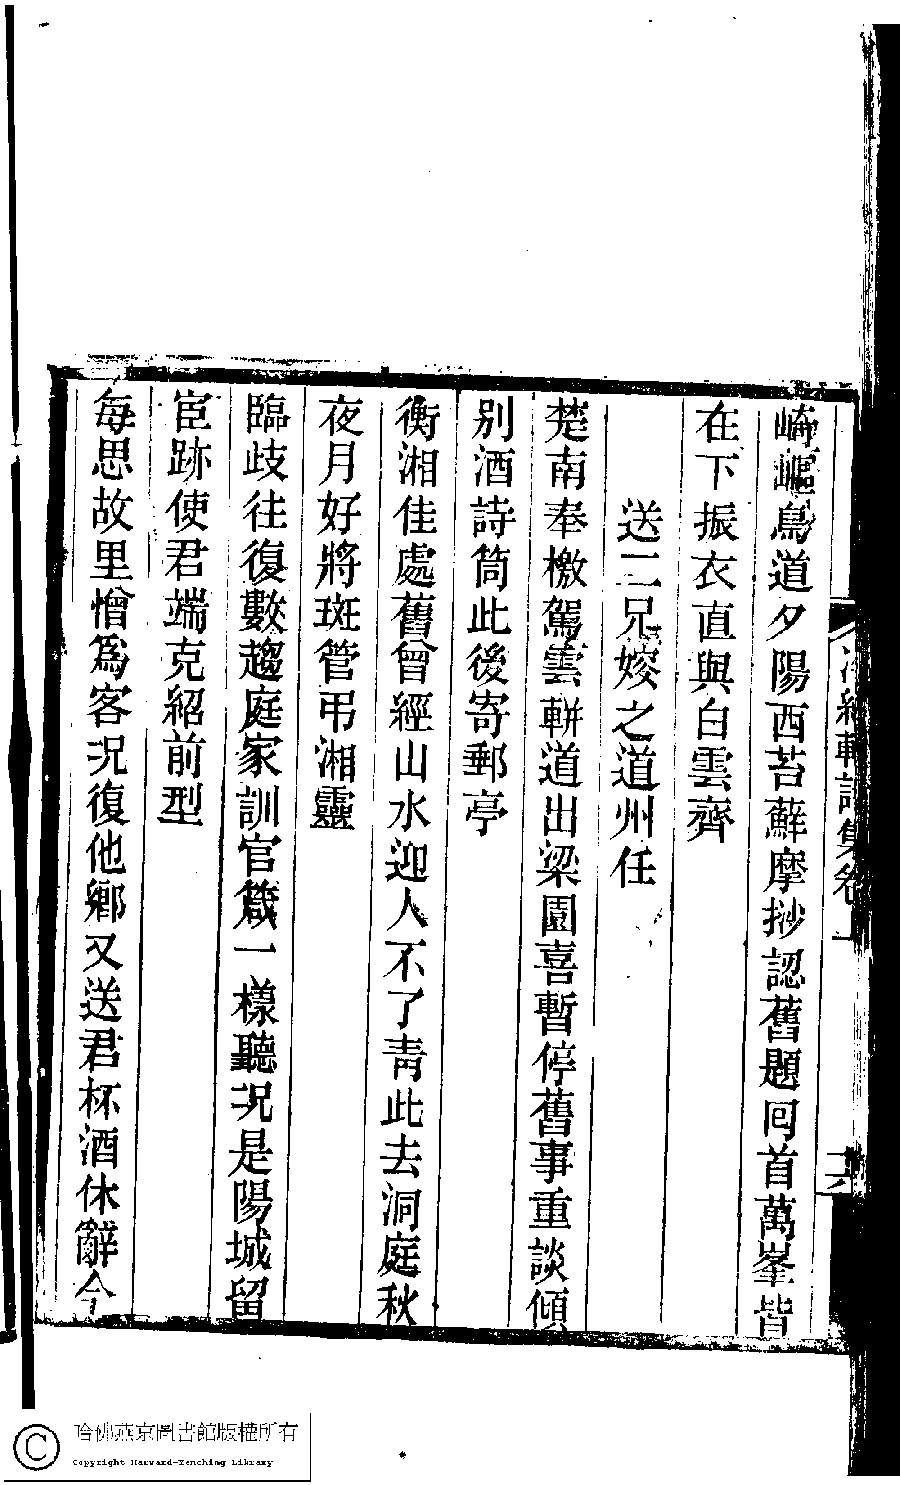 崎嶇鳥道夕陽西苔蘚摩挱認舊題囘首萬峯皆
在下振衣直與白雲齊
送二兄嫁之道州任
楚南奉檄駕雲軿道出梁園喜暫停舊事重談傾
别酒詩筒此後寄郵亭
衡湘佳處舊曾經山水迎人不了靑此去洞庭秋
夜月好將斑管弔湘靈
臨歧往復數趨庭家訓官箴一樣聽况是陽城留
宦跡使君端克紹前型
每思故里憎爲客况復他鄉又送君杯酒休辭今
詩集卷
六
哈佛燕京圖書館版權所有
Copyright Harvard-Yenching Library